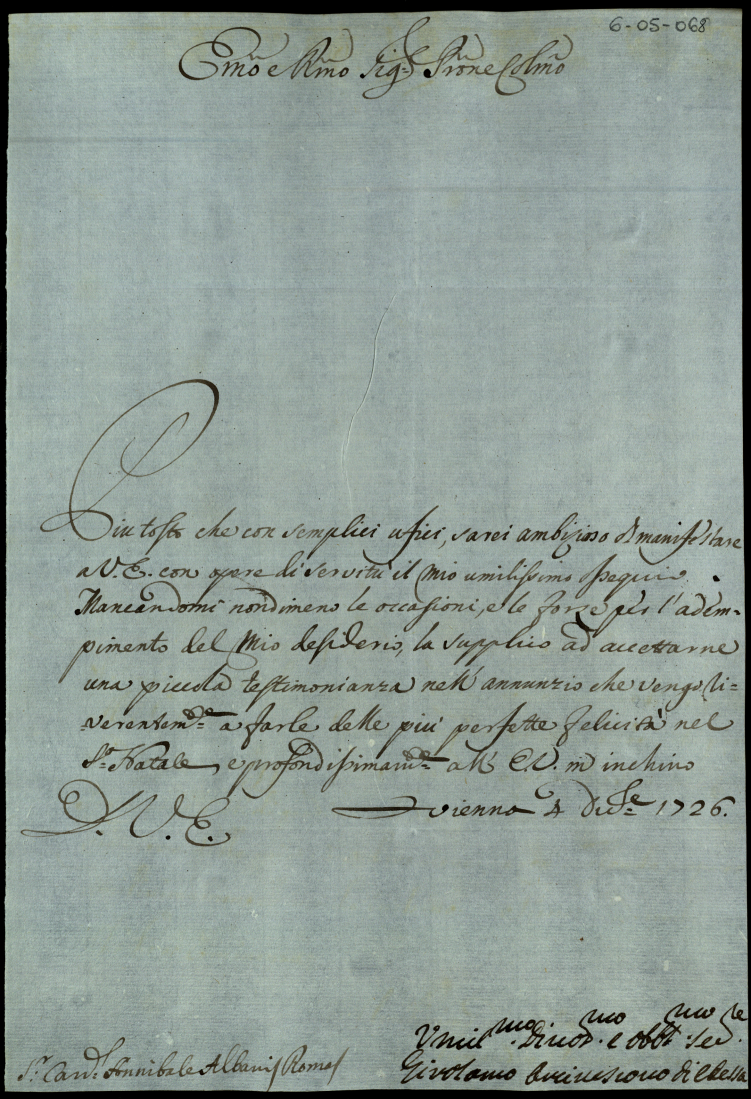 6-05-068
Emo e Rmo Sigr Prone Colmo
Piutosto che con semplici ufici, sarei ambizioso di manifestare
a V. E. con opere di servitù il mio umilissimo ossequio.
Mancandomi nondimeno le occasioni, e le forze per l'adem-
pimento del mio desiderio, la supplico ad accettarne
una piccola testimonianza nell'annunzio che vengo ri-
-verentemte a farle delle più perfette felicità nel
So Natale, e profondissimamte all'E.V. m'inchino
D. V. E.
Vienna 4 Dicre 1726.
Umilmo Divotmo e obbtmo Sere
Girolamo Arcivescovo di Edessa
Sr Cardl Annibale Albani Roma